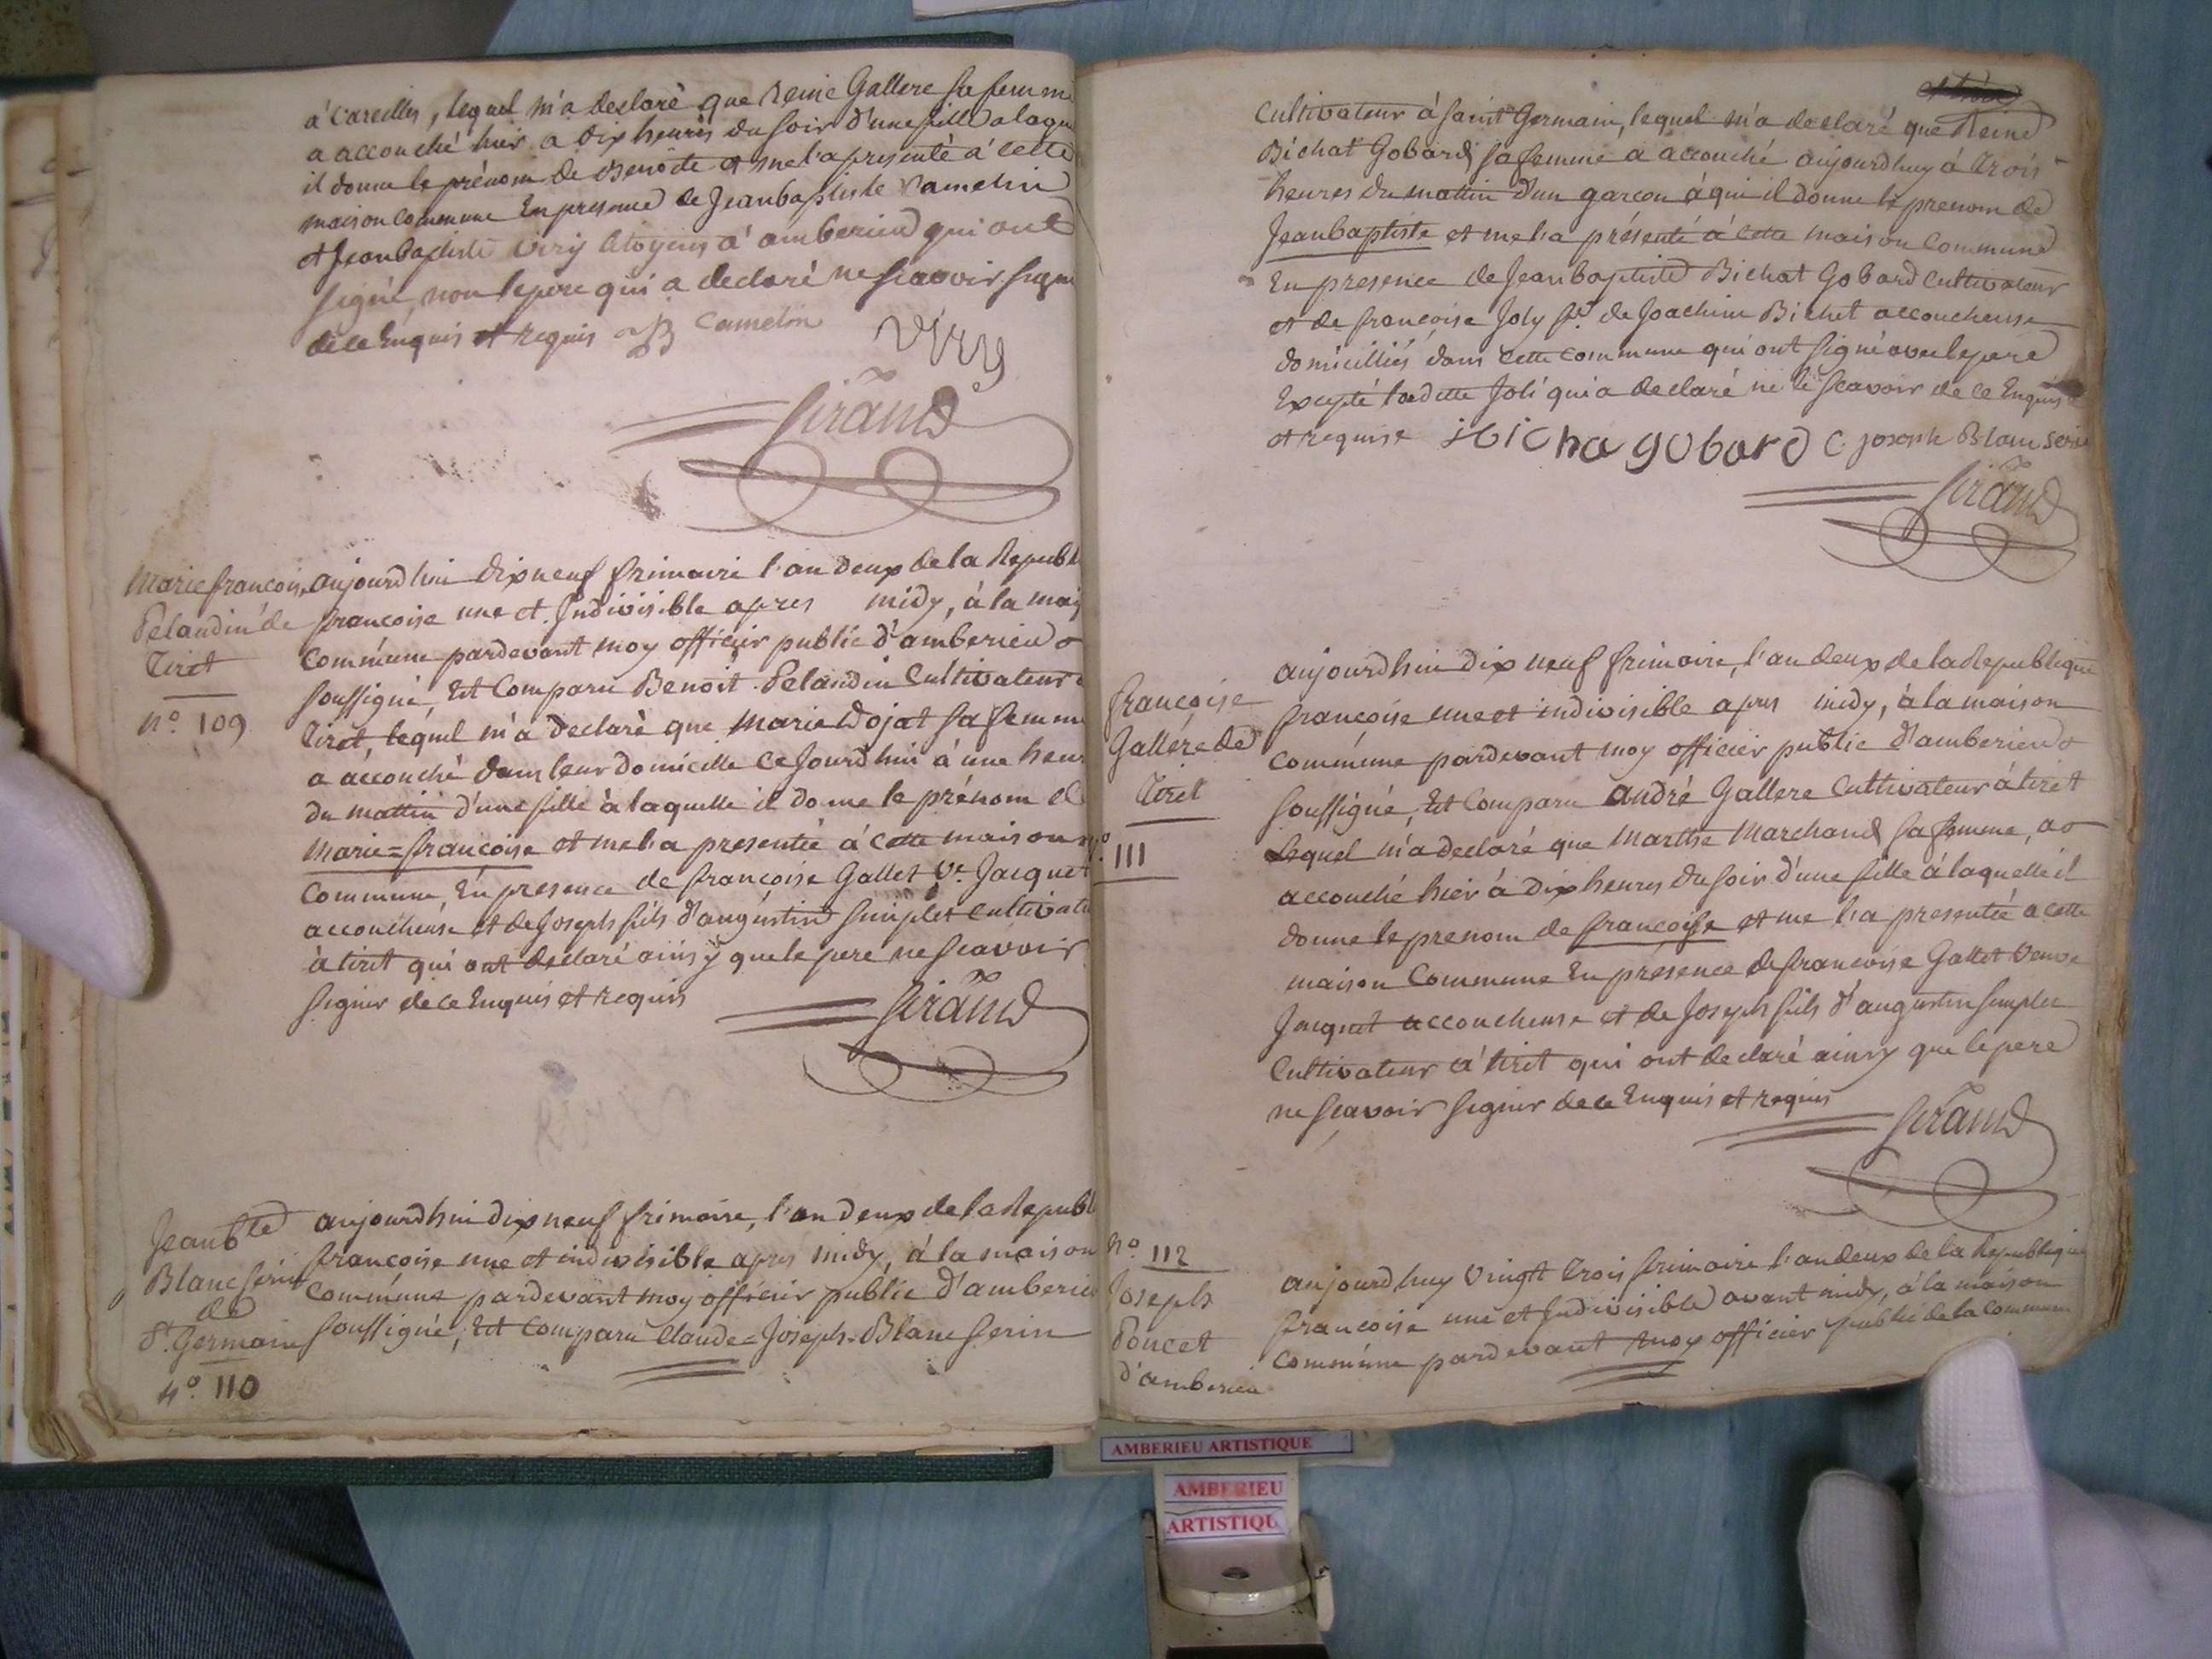 à Careilles, lequel m'a declaré que Reine Gallere sa femm
a accouché hier a dix heures du soir d'une fille a laqu
il donne le prénom de Benoite et me l'a presenté a cette
maison commune En presence de Jeanbaptiste Camelin
et Jeanbaptiste Viry Citoyens a amberieu qui ont
signé, non le pere qui a declaré ne scavoir sign
de ce Enquis et requis JB Camelin
Viry
Sirand
Marie francoise
Pelandin de
Tiret
n.o 109
aujourdhui dixneuf frimaire l'an deux de la Republ
francoise une et Indivisible apres midy, à la mais
Commune pardevant moy officier public d'amberieu
soussigné, Est Comparu Benoit Pelandin Cultivateur
Tiret, lequel m'a declaré que Marie Dojat sa femme
a accouché dans leur domicille ce Jourdhui à une heur
du mattin d'une fille à laquelle il donne le prénom de
Marie=francoise et me l'a presentée à cette maison
Commune, En presence de francoise Gallet Ve. Jacquet
accoucheuse et de Joseph fils d'augustin Simplet Cultivate
à tiret qui ont declaré ainsy que le pere ne scavoir
signer de ce Enquis et requis
Sirand
Jean bte
Blanc Serin
de
St. Germain
n.o 110
aujourdhui dixneuf frimaire, l'an deux de la Republ
francoise une et indivisible apres midy, à la maison
Commune pardevant moy officier public d'amberieu
soussigné, Est Comparu Claude=Joseph-Blanc Serin
Cultivateur à saint Germain, lequel m'a declaré que Reine
Bichat Gobard sa femme a accouché aujourdhuy à trois
heures du mattin d'un garcon à qui il donne le prenom de
Jeanbaptiste et me l'a présenté à cette maison Commune
En presence de Jeanbaptiste Bichat Gobard Cultivateur
et de francoise Joly fe. de Joachim Bichet accoucheuse
domicilliés dans cette commune qui ont signé avec le pere
Excepté ladette Joli qui a declaré ne le scavoir de ce Enquise
et requise bicha gobard C joseph Blanc Serin
Sirand
francoise
Gallere de
Tiret
n.o 111
aujourdhui dix neuf frimaire, l'an deux de la Republique
francoise une et indivisible apres midy, à la maison
commune pardevant moy officier public d'amberieu
soussigné, Est Comparu andré Gallere Cultivateur à tiret
Lequel m'a declaré que Marthe Marchand sa femme, a
accouché hier à dix heures du soir d'une fille à laquelle il
donne le prenom de francoise et me l'a presentée a cette
maison Commune En présence de francoise Gallet veuve
Jacquet accoucheuse et de Joseph fils d'augustin Simplet
Cultivateur à tiret qui ont declaré ainsy que le pere
ne scavoir signer de ce Enquis et requis
Sirand
n.o 112
Joseph
Poncet
d'amberieu
aujourdhuy vingt trois frimaire l'an deux de la Republique
francoise une et Indivisible avant midy, à la maison
commune pardevant moy officier public de la Commune
AMBERIEU ARTISTIQUE
AMBERIEU
ARTISTIQU